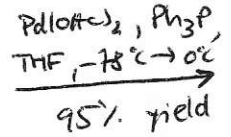 Pd(OAc)₂, Ph₃P,
THF, -78°C → 0°C
95% yield